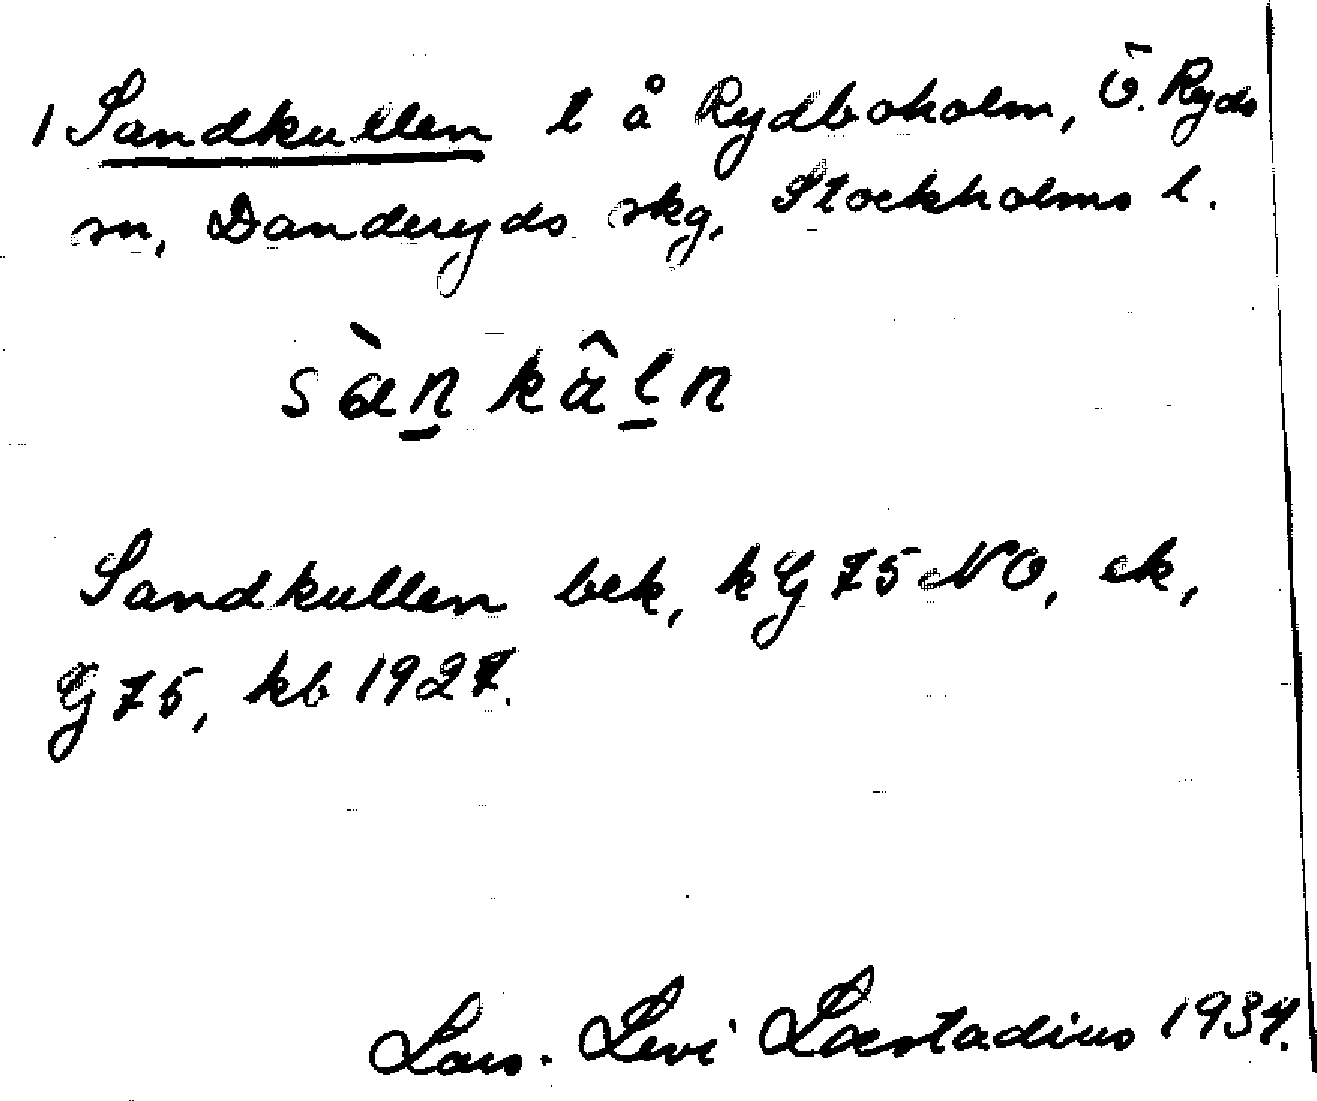 1 Sandkullen t å Rydboholm, Ö. Ryds
sn, Danderyds skg, Stockholms l.
sàn̲ kâl̲n
Sandkullen bek, kG 75 NO, ek,
G 75, kb 1927.
Lars-Levi Læstadius 1934.